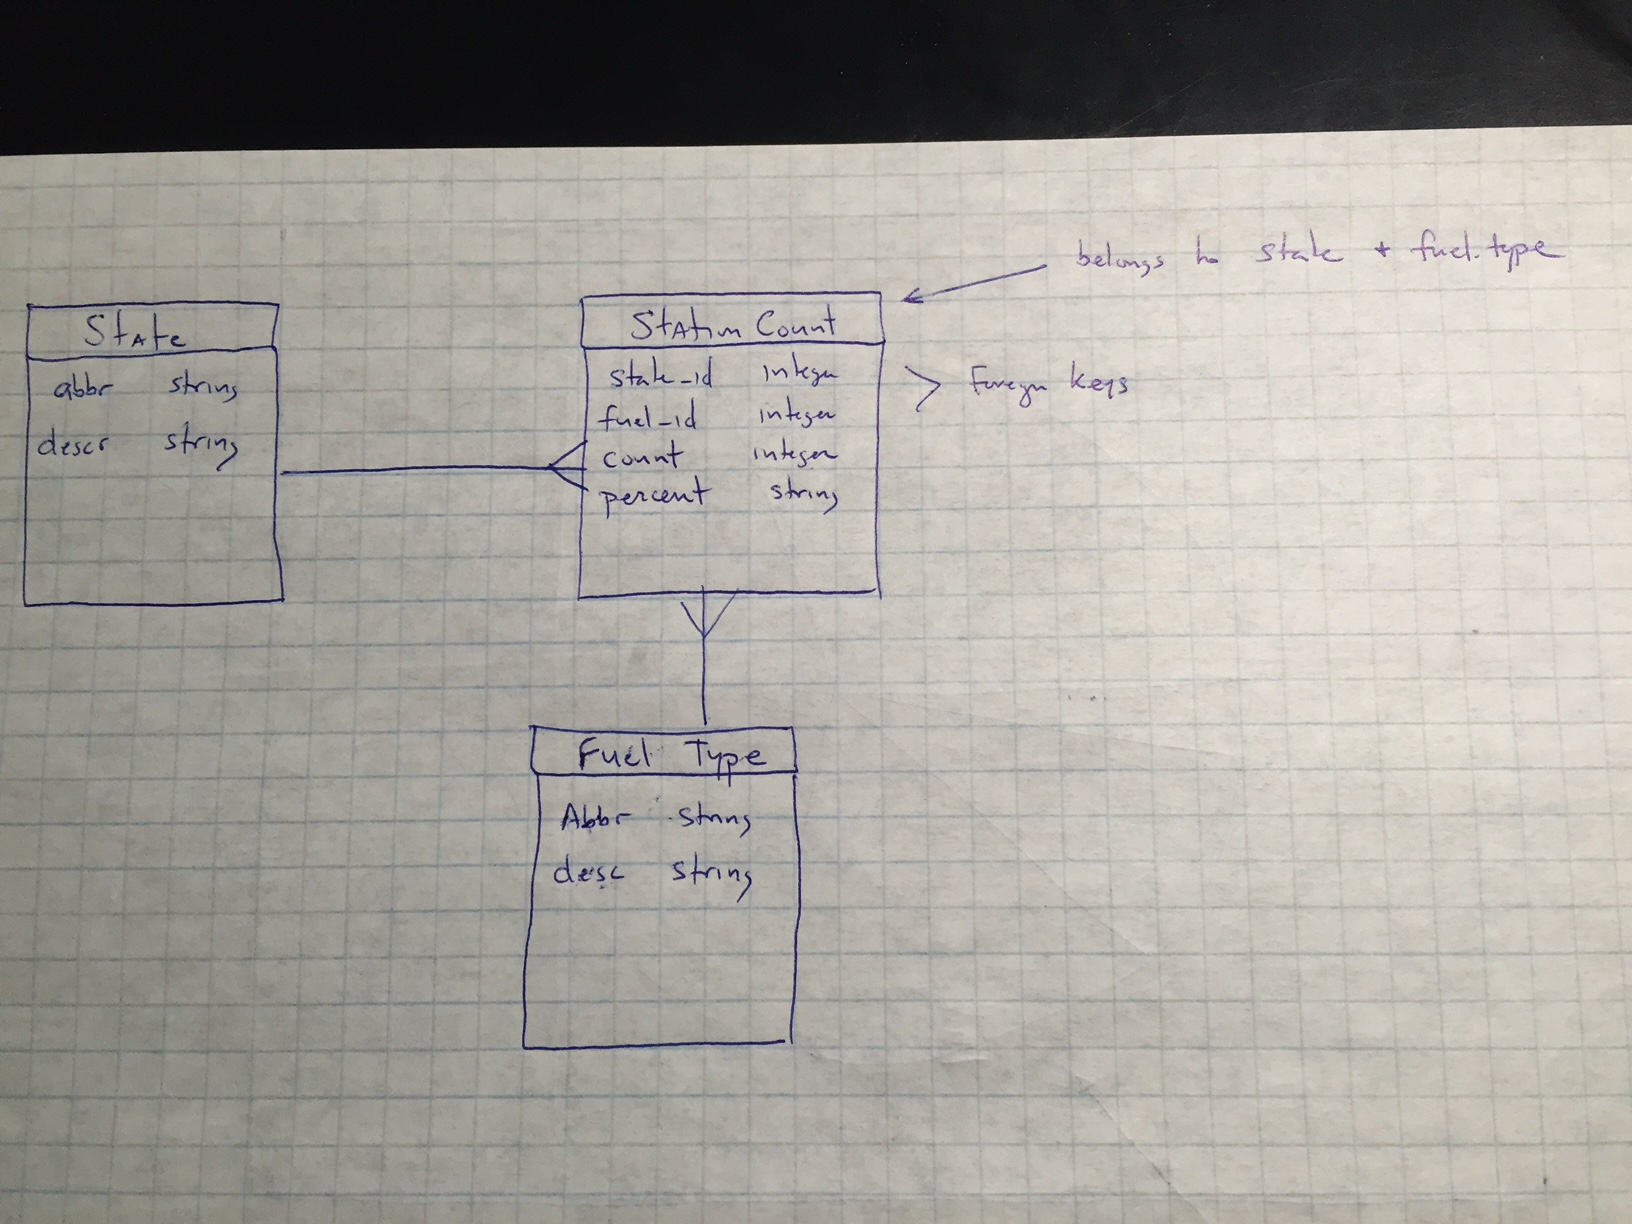 State
abbr string
descr string
Station Count
state_id integer
fuel_id integer
count integer
percent string
foreign keys
belongs to state + fuel.type
Fuel Type
Abbr string
desc string